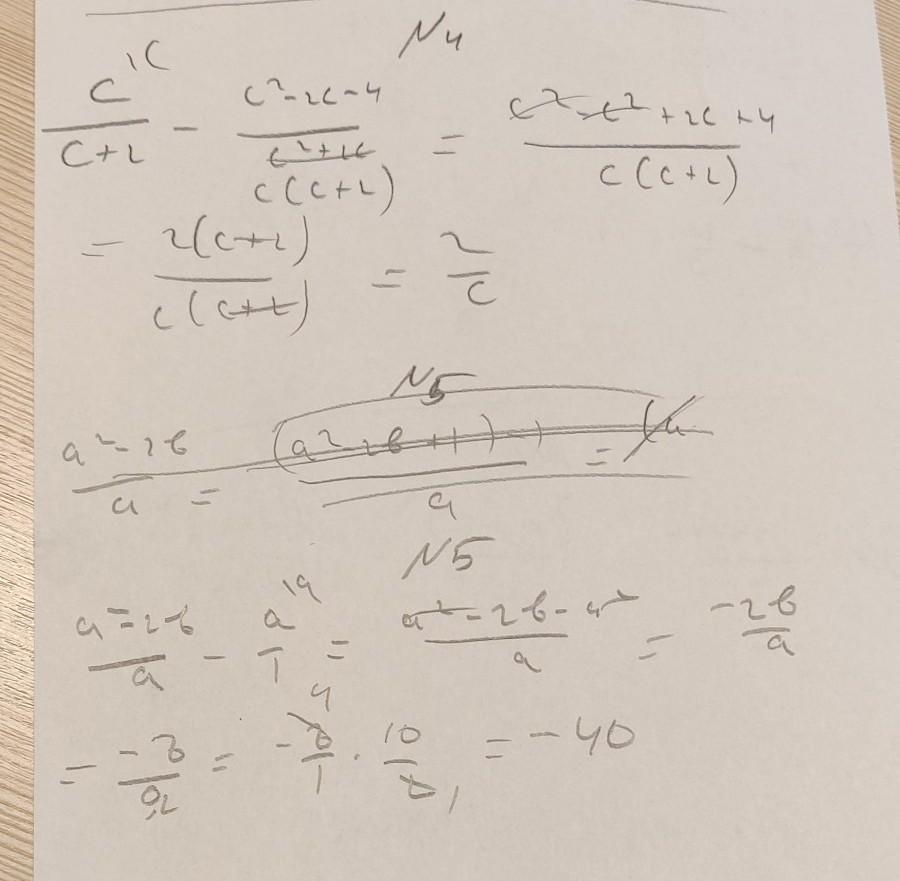 N4
c/(c+2) \c - (c²-2c-4)/(c²+2c) c(c+2) = (c²-c²+2c+4)/(c(c+2))
= 2(c+2)/(c(c+2)) = 2/c
N5
(a²-2b)/a = ((a²-2b+1)-1)/a =
N5
(a²-2b)/a - a/1 \a = (a²-2b-a²)/a = -2b/a
= -8/0,2 = -8/1 4 · 10/2 1 = -40